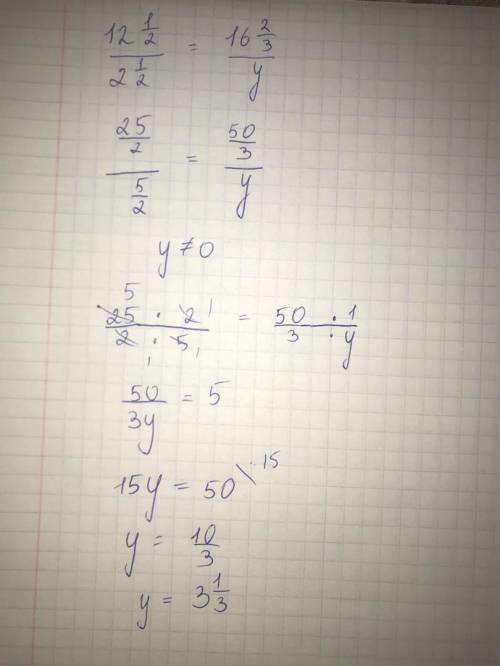 12 1/2 / 2 1/2 = 16 2/3 / y
25/2 / 5/2 = 50/3 / y
y ≠ 0
5
25 · 2 1 / 2 1 · 5 1 = 50 · 1 / 3 · y
50 / 3y = 5
15y = 50 \ : 15
y = 10/3
y = 3 1/3